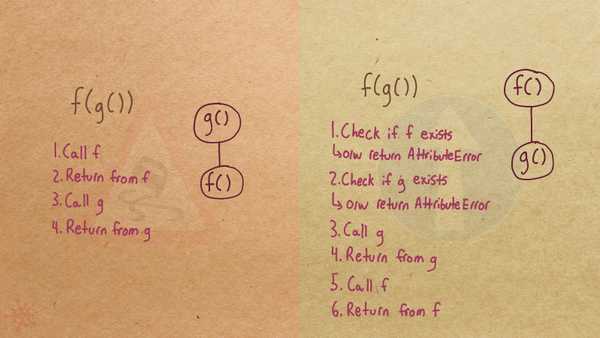 f(g())
1. Call f
2. Return from f
3. Call g
4. Return from g
g()
f()
f(g())
1. Check if f exists
↳ orw return AttributeError
2. Check if g exists
↳ orw return AttributeError
3. Call g
4. Return from g
5. Call f
6. Return from f
f()
g()